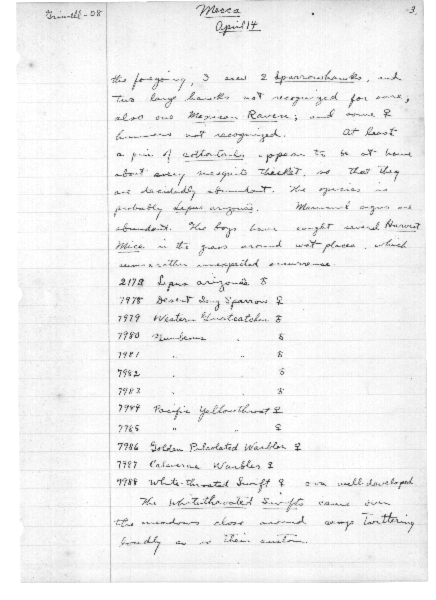 Grinnell-08
Mecca
3
April 14
the foregoing, I saw 2 Sparrowhawks, and
two large hawks not recognized for sure;
also one Mexican Raven; and some ♀
hummers not recognized. At least
a pair of cottontails appears to be at home
about every mesquite thicket, so that they
are decidedly abundant. The species is
probably Lepus arizonae. Mammal signs are
abundant. The boys have caught several Harvest
Mice in the grass around wet places, which
seems rather unexpected occurrence.
2172 Lepus arizonae ♂
7978 Desert Song Sparrow ♀
7979 Western Gnatcatcher ♂
7980 " ♂
7981 " " ♂
7982 " " ♂
7983 " " ♂
7984 Pacific Yellowthroat ♀
7985 " " ♀
7986 Golden Pileolated Warbler ♀
7987 Calaveras Warbler ♀
7988 White-throated Swift ♀ ova well-developed
The Whitethroated Swifts came over
the meadows close around camp twittering
loudly as is their custom.